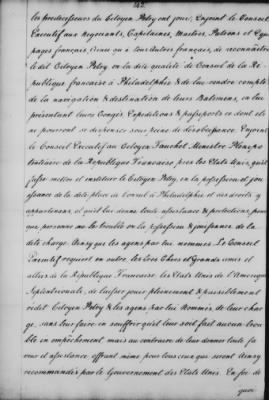 142.
les prédecesseurs du Citoyen Petry ont joui, Enjoint le Conseil
Executif aux Negocians, Capitaines, Maitres, Patrons et Equi
pages français, à ceux ou à tous autres français, de reconnaitre
le dit Citoyen Petry en la dite qualité de Consul de la Re-
publique française à Philadelphie & de lui rendre compte
de la navigation & destination de leurs Batimens, en lui
présentant leurs Congés Expeditions & passeports ce dont ils
ne pourront se dispenser sous peine de désobeissance. Enjoint
le Conseil Executif au Citoyen Fauchet Ministre Plénipo
tentiaire de la Republique Francaise près les Etats Unis, qu'il
fasse mettre et instituer le Citoyen Petry, en la possession et jou-
issance de la dite place de Consul à Philadelphie et des droits y
appartenans, et qu'il lui donne toute assistance & protection, pour
que personne ne le trouble en la possession & jouissance de la
dite charge Ainsy que les agens par lui nommés. Le Conseil
Executif requiert en outre, les bons Chers et Grands amis et
alliés de la Republique Francaise, les Etats Unis de l'Amerique
Septentrionale, de laisser jouir pleinement & paisiblement
ledit Citoyen Petry & les agens par lui Nommés de leur char
ge, sans leur faire ou souffrir qu'il leur soit fait aucun trou
ble ou empéchement mais au contraire de leur donner toute fa
veur et assistance offrant même pour tous ceux qui seront Ainsy
recommandés par le Gouvernement des Etats Unis. En foi de
quoi